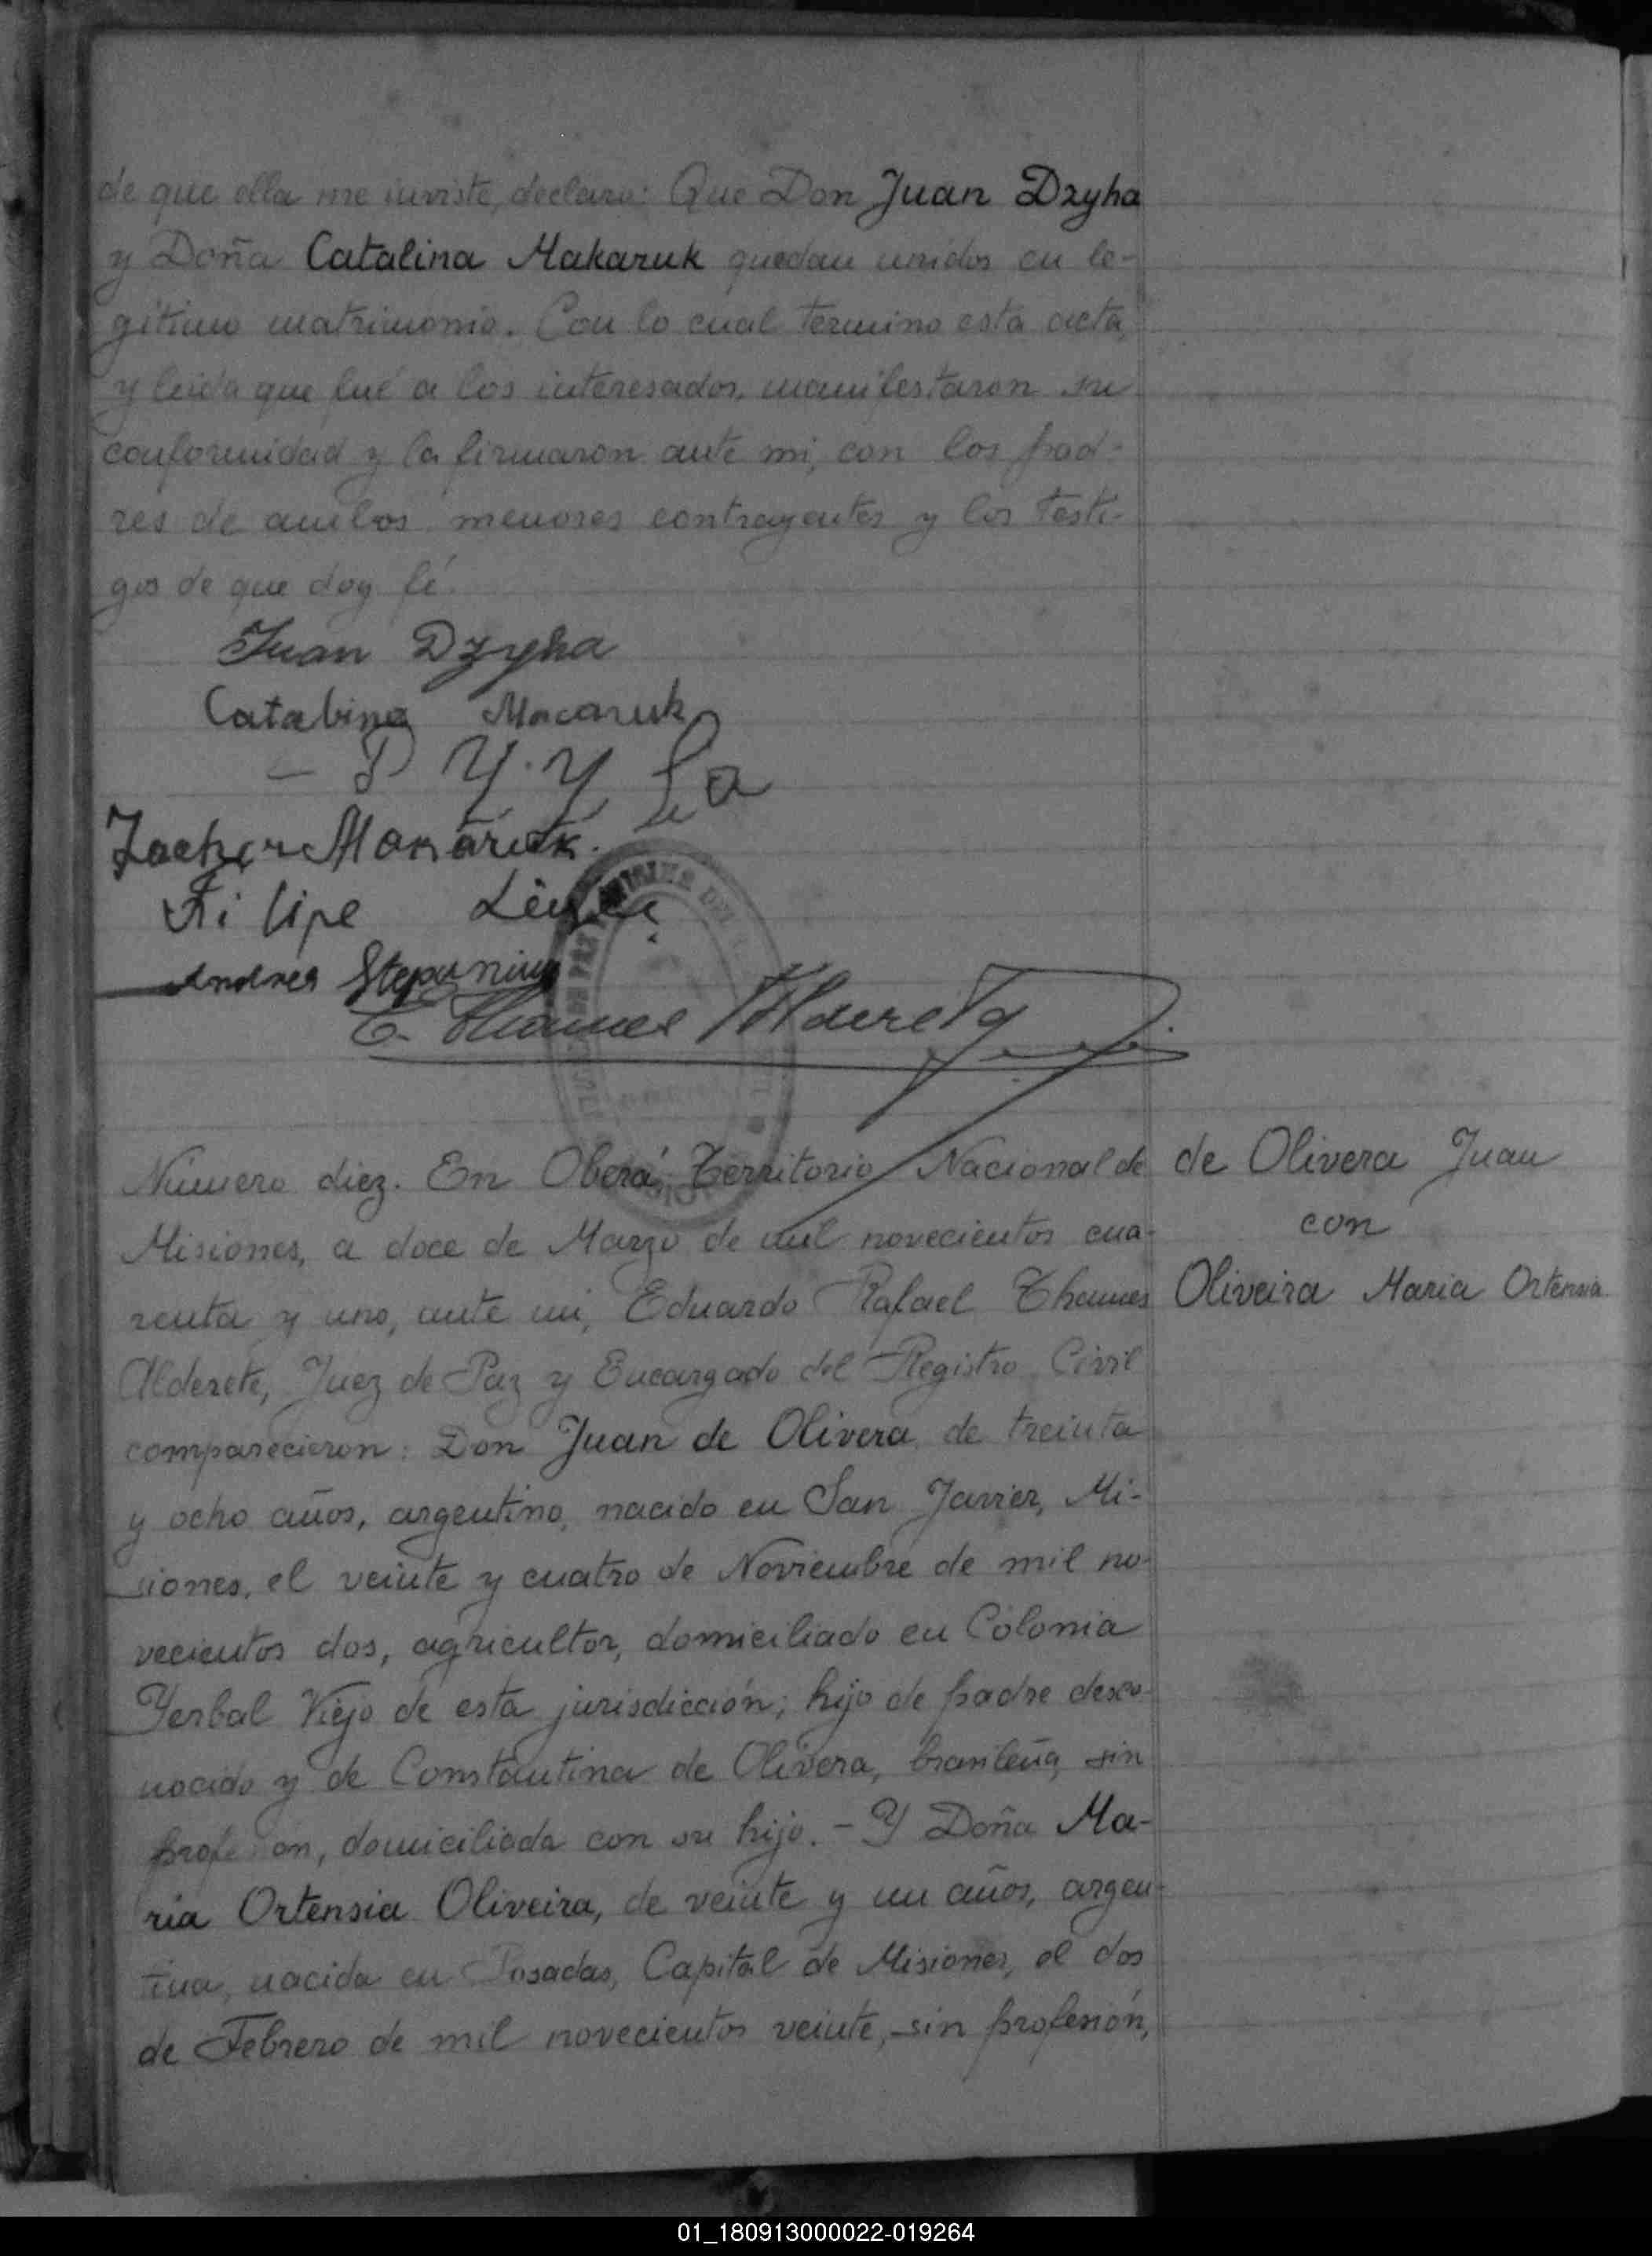 de que ella me inviste, declaro: Que Don Juan Dzyha
y Doña Catalina Makaruk quedan unidos en le-
gitimo matrimonio. Con lo cual termino esta acta,
y leida que fué a los interesados, manifestaron su
conformidad y la firmaron ante mi, con los pad-
res de ambos menores contrayentes y los testi-
gos de que doy fé.
Juan Dzyha
Catalina Macaruk
Makaruk.
Filipe
Andres
E. Thames Alderete
Número diez. En Oberá, Territorio Nacional de
Misiones, a doce de Marzo de mil novecientos cua-
renta y uno, ante mi, Eduardo Rafael Thames
Alderete, Juez de Paz y Encargado del Registro Civil
comparecieron: Don Juan de Olivera, de treinta
y ocho años, argentino, nacido en San Javier, Mi-
siones, el veinte y cuatro de Noviembre de mil no-
vecientos dos, agricultor, domiciliado en Colonia
Yerbal Viejo de esta jurisdicción; hijo de padre desco-
nocido y de Constantina de Olivera, brasileña, sin
profesión, domiciliada con su hijo. - Y Doña Ma-
ria Ortensia Oliveira, de veinte y un años, argen-
tina, nacida en Posadas, Capital de Misiones, el dos
de Febrero de mil novecientos veinte, sin profesión,
de Olivera Juan
con
Oliveira Maria Ortensia
01_180913000022-019264